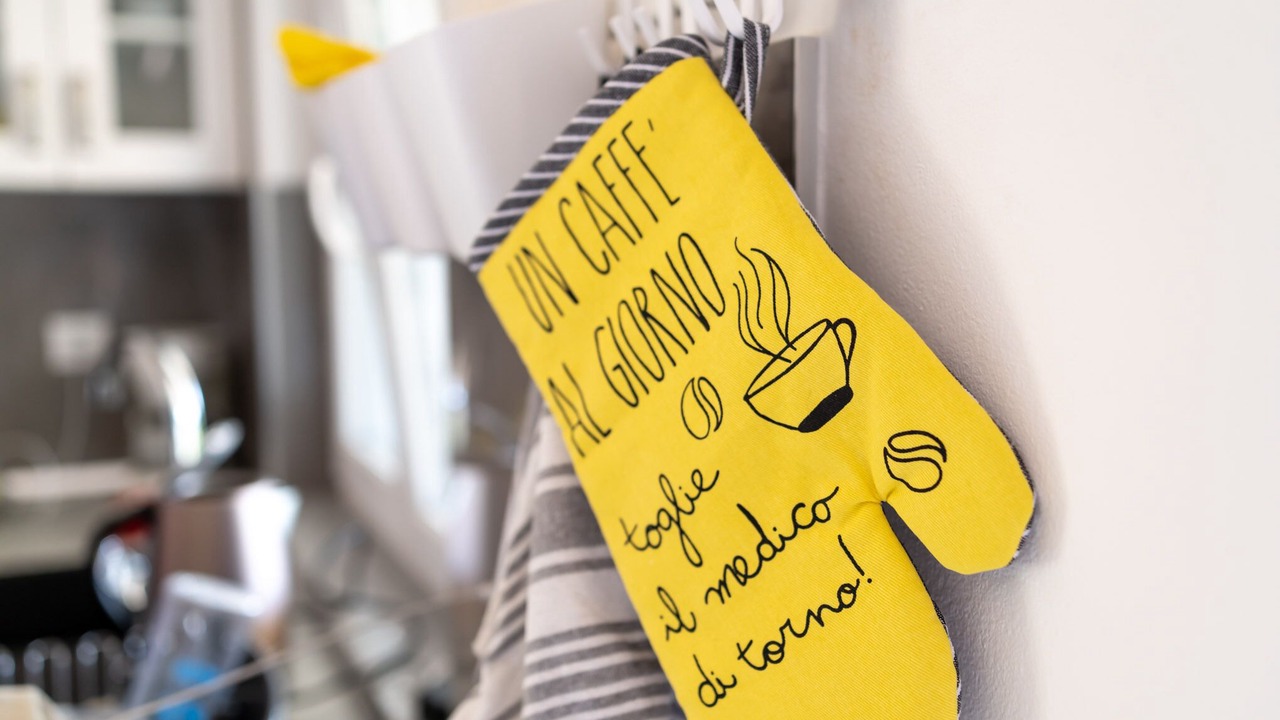 UN CAFFE'
AL GIORNO
toglie
il medico
di torno!